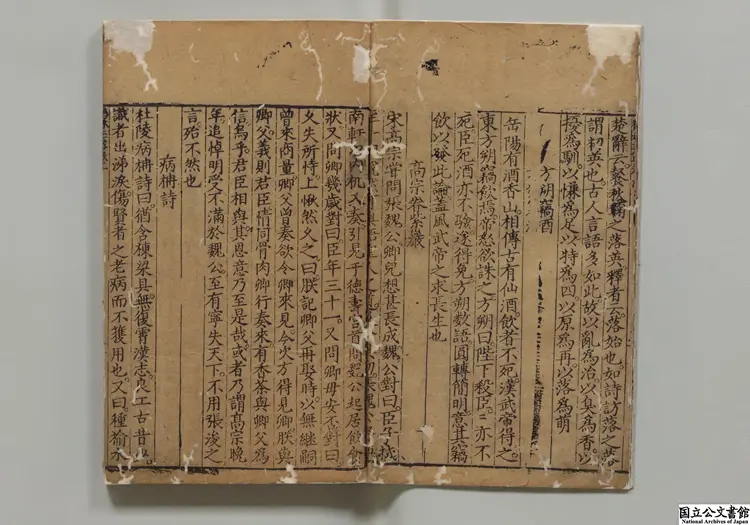 楚辭云餐秋菊之落英釋者云落始也如詩訪落之落
謂初英也古人言語多如此故以亂為治以臭為香以
擾為馴以慊為足以特為匹以原為再以落為萌
方朔竊酒
岳陽有酒香山相傳古有仙酒飲者不死漢武帝得之
東方朔竊飲焉帝怒欲誅之方朔曰陛下殺臣臣亦不
死臣死酒亦不驗遂得免方朔數語圓轉簡明意其竊
飲以發此論蓋風武帝之求長生也
高宗眷紫巖
宋高宗嘗問張魏公卿兒想甚長成魏公對曰臣子栻
南軒以內機入奏引見于德壽宮首問魏公起居飲食
狀又問卿幾歲對曰臣年三十一又問卿母安否對曰
久失所恃上愀然久之曰朕記卿父再娶時以無繼嗣
曾來商量卿父曾奏欲令卿來見今次方得見卿朕與
卿父義則君臣情同骨肉卿行奏來有香茶與卿父為
信嗚乎君臣相與其恩意乃至是哉或者乃謂高宗晚
年追悼明受不滿於魏公至有寧失天下不用張浚之
言殆不然也
病柟詩
杜陵病柟詩曰猶含棟梁具無復霄漢志良工古昔少
識者出涕淚傷賢者之老病而不獲用也又曰種榆水
国立公文書館
National Archives of Japan